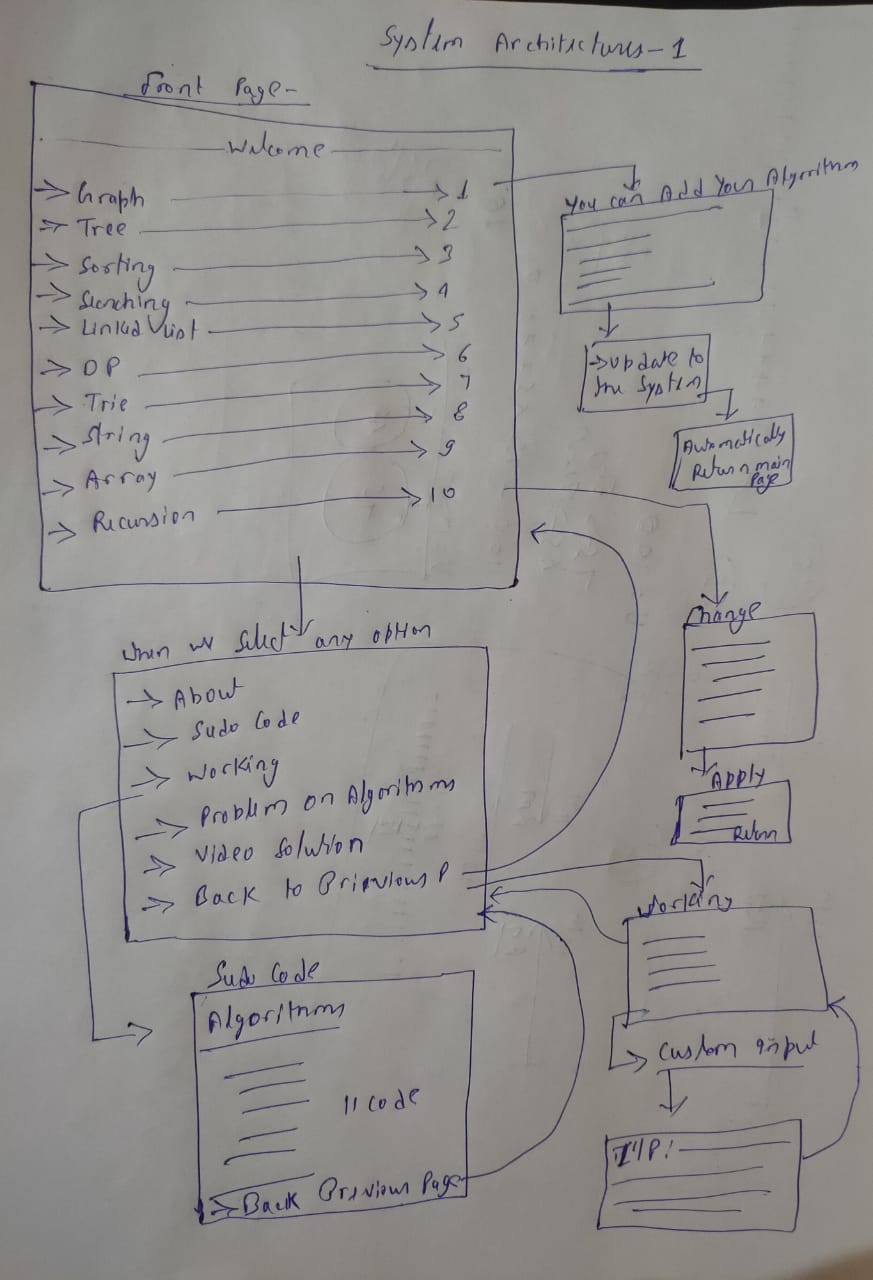 System Architectures-1
Front Page-
Welcome
Graph 1
Tree 2
Sorting 3
Searching 4
Linked List 5
DP 6
Trie 7
String 8
Array 9
Recursion 10
You can Add Your Algorithm
Update to
the System
Automatically
Return main
Page
Change
Apply
Return
When we Select any option
About
Sudo Code
Working
Problem on Algorithms
Video Solution
Back to Prievious P
Sudo Code
Algorithms
11 Code
Back Previous Page
Working
Custom Input
I/P: